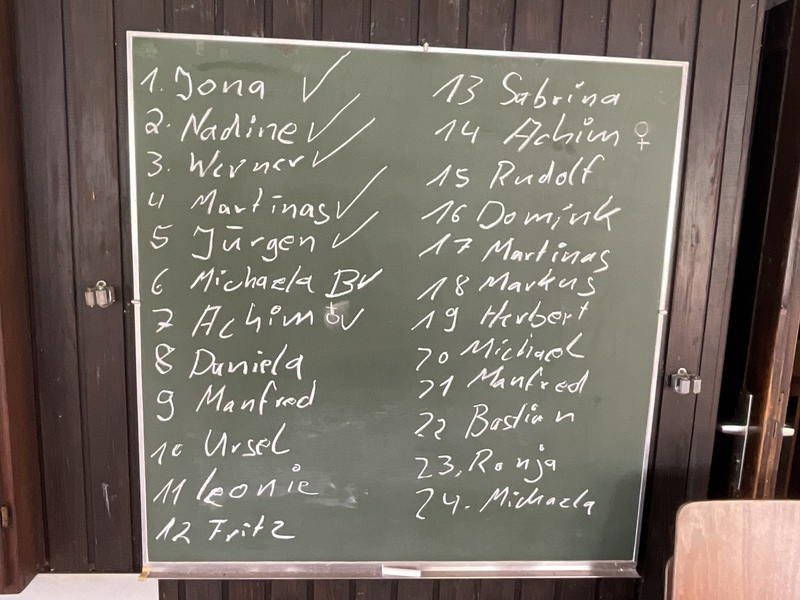 1. Jona ✓
2. Nadine ✓
3. Werner ✓
4 Martinas ✓
5 Jürgen ✓
6 Michaela B ✓
7 Achim ✓
8 Daniela
9 Manfred
10 Ursel
11 Leonie
12 Fritz
13 Sabrina
14 Achim ♀
15 Rudolf
16 Domink
17 Martinas
18 Markus
19 Herbert
20 Michael
21 Manfred
22 Bastian
23. Ronja
24. Michaela